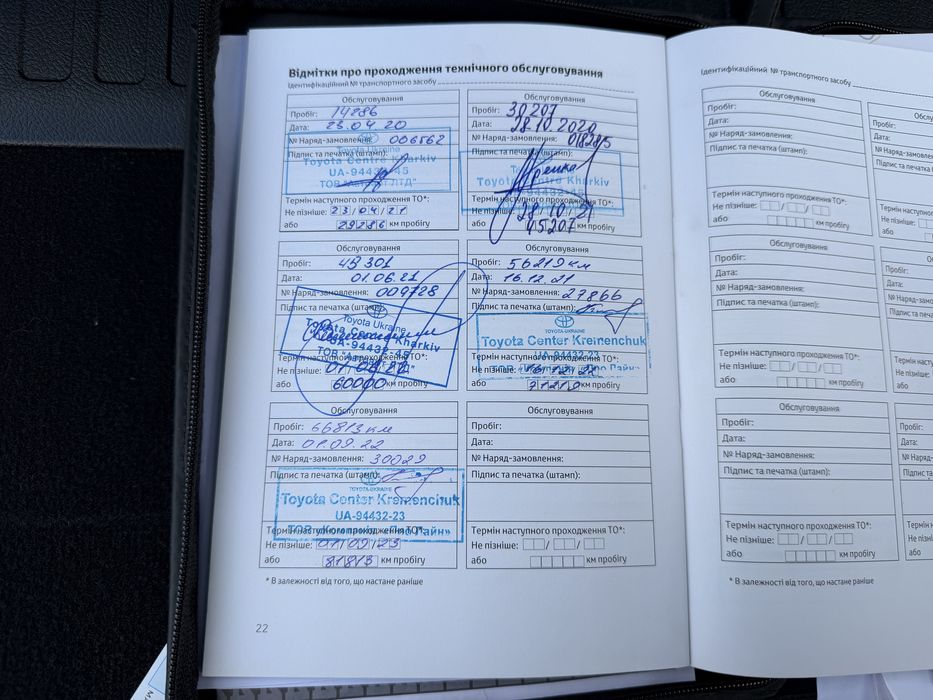 Відмітки про проходження технічного обслуговування
Ідентифікаційний № транспортного засобу
Обслуговування
Пробіг: 14286
Дата: 23.04 20
№ Наряд-замовлення: 006562
Підпис та печатка (штамп):
Toyota Ukraine
Toyota Centre Kharkiv
UA-94432-45
Термін наступного проходження ТО*:
Не пізніше: 23/04/21
або 29286 км пробігу
Обслуговування
Пробіг: 30207
Дата: 28.10.2020
№ Наряд-замовлення: 018285
Підпис та печатка (штамп):
Toyota Centre Kharkiv
Термін наступного проходження ТО*:
Не пізніше: 28/10/21
або 45207 км пробігу
Обслуговування
Пробіг: 45301
Дата: 01.06.21
№ Наряд-замовлення: 009728
Підпис та печатка (штамп):
Toyota Ukraine
Toyota Centre Kharkiv
UA-94432-45
Термін наступного проходження ТО*:
Не пізніше:
або 60000 км пробігу
Обслуговування
Пробіг: 56219 км
Дата: 16.12.21
№ Наряд-замовлення: 27866
Підпис та печатка (штамп):
TOYOTA-UKRAINE
Toyota Center Kremenchuk
UA-94432-23
Термін наступного проходження ТО*:
Не пізніше: 16/12/22
або 71219 км пробігу
Обслуговування
Пробіг: 66813 км
Дата: 01.09.22
№ Наряд-замовлення: 30029
Підпис та печатка (штамп):
TOYOTA-UKRAINE
Toyota Center Kremenchuk
UA-94432-23
Термін наступного проходження ТО*:
Не пізніше: 01/09/23
або 81813 км пробігу
Обслуговування
Пробіг:
Дата:
№ Наряд-замовлення:
Підпис та печатка (штамп):
Термін наступного проходження ТО*:
Не пізніше:
або км пробігу
* В залежності від того, що настане раніше
22
Ідентифікаційний № транспортного засобу
Обслуговування
Пробіг:
Дата:
№ Наряд-замовлення:
Підпис та печатка (штамп):
Термін наступного проходження ТО*:
Не пізніше:
або км пробігу
Обслуговування
Пробіг:
Дата:
№ Наряд-замовлення:
Підпис та печатка (штамп):
Термін наступного проходження ТО*:
Не пізніше:
або км пробігу
Обслуговування
Пробіг:
Дата:
№ Наряд-замовлення:
Підпис та печатка (штамп):
Термін наступного проходження ТО*:
Не пізніше:
або км пробігу
* В залежності від того, що настане раніше
Пробіг:
Дата:
Пробіг:
Дата:
Пробіг:
Дата: